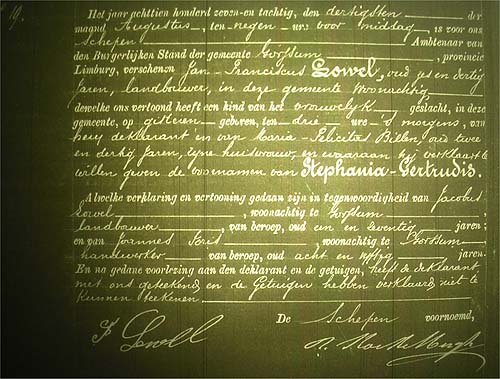 19.
Het jaar achttien honderd zeven-en tachtig, den dertigsten der
maand Augustus, ten negen ure voor middag is voor ons
Schepen Ambtenaar van
den Burgerlijken Stand der gemeente Gorssum, provincie
Limburg, verschenen Jan-Franciscus Lowel, oud zes en dertig
jaren, landbouwer, in deze gemeente Woonachtig
dewelke ons vertoond heeft een kind van het vrouwelyk geslacht, in deze
gemeente, op gisteren geboren, ten drie ure 's morgens, van
hem deklarant en van Maria-Felicitas Billen, oud twee
en dertig jaren, zyne huisvrouw, en waaraan hy verklaart te
willen geven de voornamen van Stephania-Gertrudis.
Alwelke verklaring en vertooning gedaan zijn in tegenwoordigheid van Jacobus
Lowel, woonachtig te Gorssum,
landbouwer, van beroep, oud en zeventig jaren;
en van Joannes, woonachtig te Gorssum
handwerker van beroep, oud acht en jaren.
En na gedane voorlezing aan den deklarant en de getuigen, heeft de deklarant
met ons geteekend, en de Getuigen hebben verklaard niet te
kunnen teekenen.
De Schepen voornoemd,
F Lowell